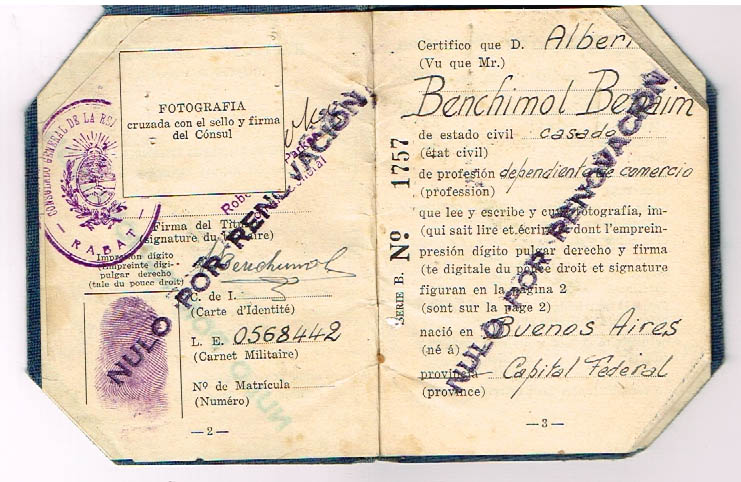 CONSULADO GENERAL DE LA
RABAT
FOTOGRAFIA
cruzada con el sello y firma
del Cónsul
Firma del
(signature du
Impresión dígito
(Empreinte digi-
pulgar derecho
(tale du pouce droit)
Benchimol
C. de I.
(Carte d'Identité)
L. E. 0568442
(Carnet Militaire)
Nº de Matrícula
(Numéro)
NULO POR RENOVACIÓN
—2—
SERIE B. Nº 1757
Certifico que D. Alber
(Vu que Mr.)
Benchimol
de estado civil casado
(état civil)
de profesión dependiente de comercio
(profession)
que lee y escribe y cuya fotografía, im-
(qui sait lire et écrire dont l'emprein-
presión dígito pulgar derecho y firma
(te digitale du pouce droit et signature
figuran en la página 2
(sont sur la page 2)
nació en Buenos Aires
(né á)
provincia Capital Federal
(province)
NULO POR RENOVACIÓN
—3—